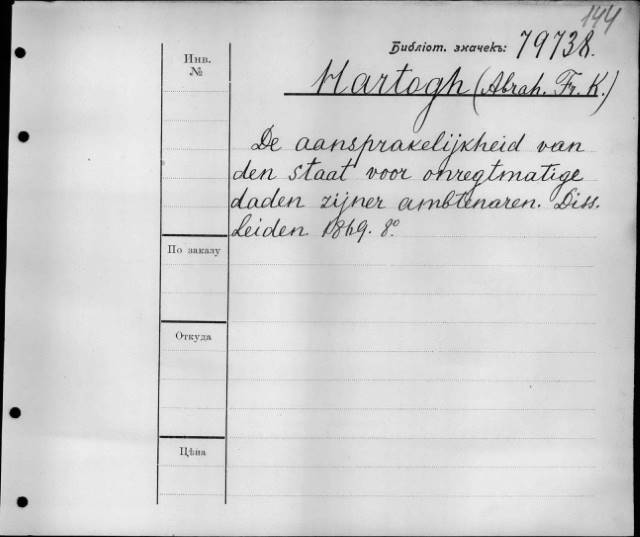 144
Библіот. значекъ: 79738.
Инв.
№
Hartogh (Abrah. Fr. K.)
De aansprakelijkheid van
den staat voor onregtmatige
daden zijner ambtenaren. Diss.
Leiden 1869. 8º
По заказу
Откуда
Цѣна